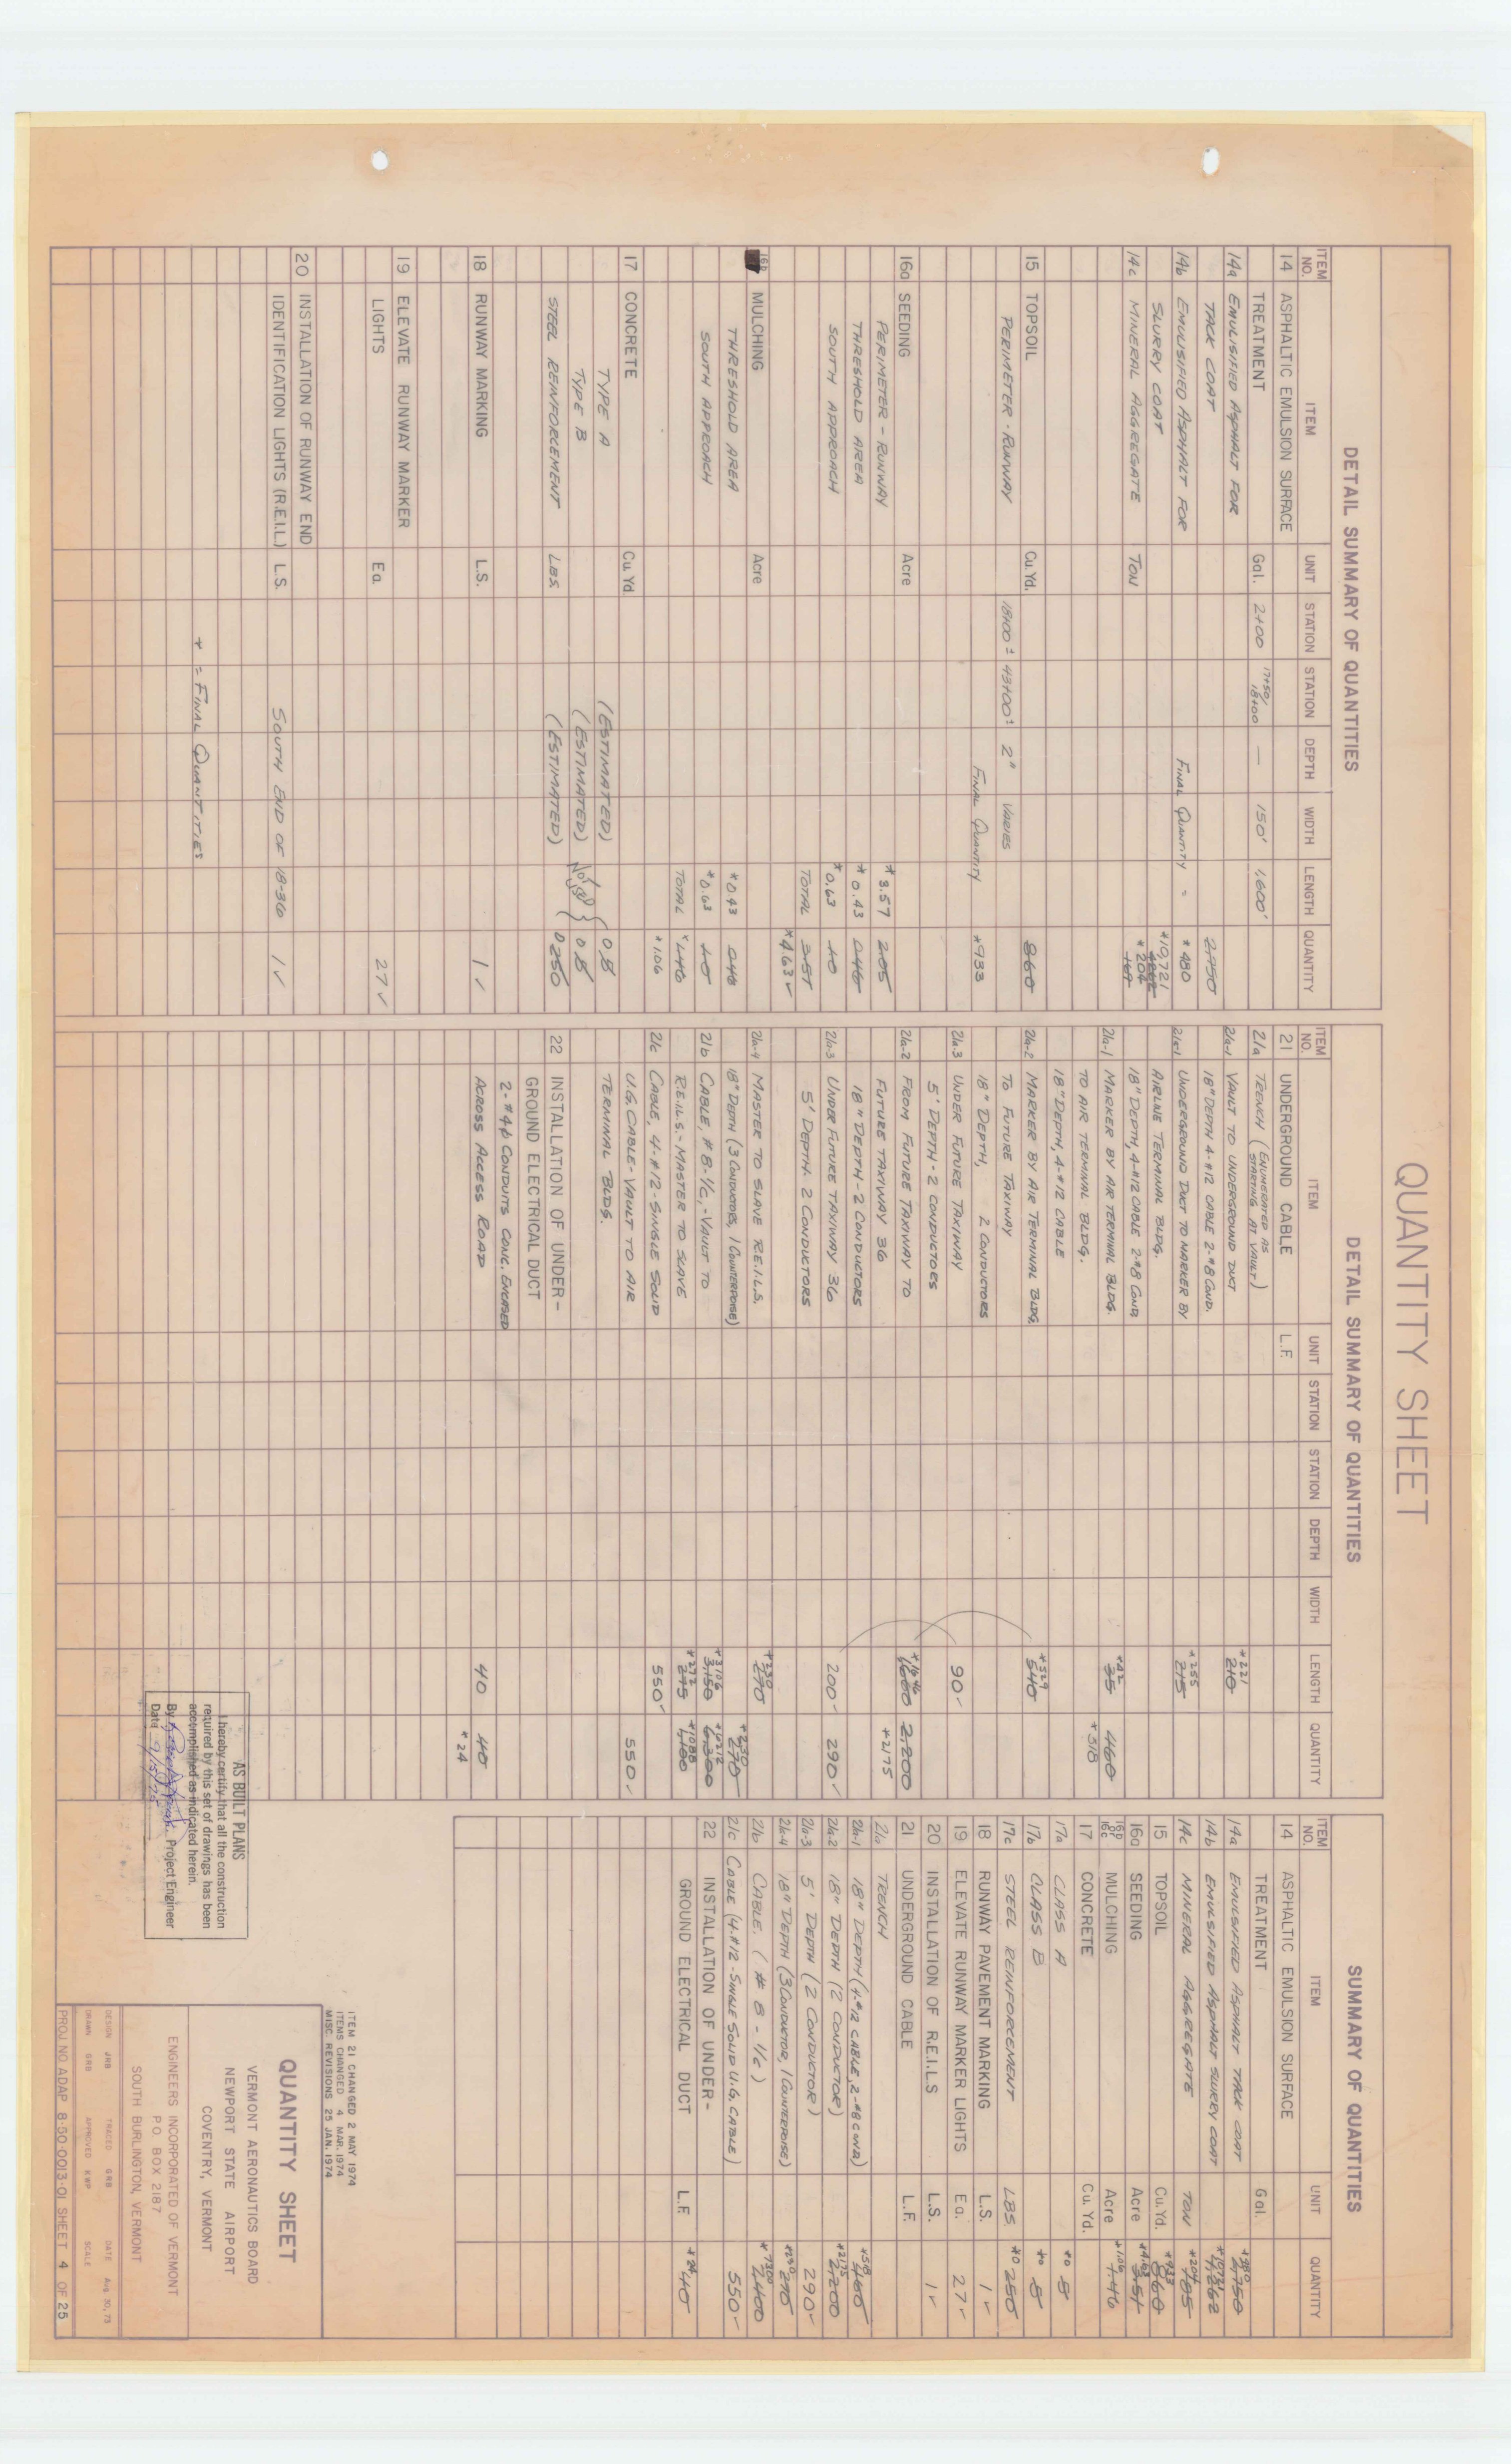 QUANTITY SHEET
DETAIL SUMMARY OF QUANTITIES
ITEM NO. ITEM UNIT STATION STATION DEPTH WIDTH LENGTH QUANTITY
14 ASPHALTIC EMULSION SURFACE
TREATMENT Gal. 2+00 17+50/18+00 — 150' 1,600'
14a EMULISIFIED ASPHALT FOR
TACK COAT 2,750
14b EMULISIFIED ASPHALT FOR FINAL QUANTITY = *480
SLURRY COAT *10,721
14c MINERAL AGGREGATE TON *204
15 TOPSOIL Cu.Yd. 860
PERIMETER - RUNWAY 18+00± 43+00± 2" VARIES
FINAL QUANTITY *933
16a SEEDING Acre
PERIMETER - RUNWAY *3.57 2.05
THRESHOLD AREA *0.43 0.46
SOUTH APPROACH *0.63 1.0
TOTAL 3.51
*4.63 ✓
16b MULCHING Acre
THRESHOLD AREA *0.43 0.46
SOUTH APPROACH *0.63 1.0
TOTAL *1.46
*1.06
17 CONCRETE Cu.Yd.
TYPE A (ESTIMATED) 0 8
TYPE B (ESTIMATED) 0 8
STEEL REINFORCEMENT LBS. (ESTIMATED) 0 250
18 RUNWAY MARKING L.S. 1 ✓
19 ELEVATE RUNWAY MARKER
LIGHTS Ea. 27 ✓
20 INSTALLATION OF RUNWAY END
IDENTIFICATION LIGHTS (R.E.I.L.) L.S. SOUTH END OF 18-36 1 ✓
* = FINAL QUANTITIES
DETAIL SUMMARY OF QUANTITIES
ITEM NO. ITEM UNIT STATION STATION DEPTH WIDTH LENGTH QUANTITY
21 UNDERGROUND CABLE L.F.
21a TRENCH (ENUMERATED AS STARTING AT VAULT)
21a-1 VAULT TO UNDERGROUND DUCT *221 210
18" DEPTH 4-#12 CABLE 2-#8 COND.
21a-1 UNDERGROUND DUCT TO MARKER BY *255 215
AIRLINE TERMINAL BLDG.
18" DEPTH, 4-#12 CABLE 2-#8 COND.
21a-1 MARKER BY AIR TERMINAL BLDG. *42 35 460
TO AIR TERMINAL BLDG. *518
18" DEPTH, 4-#12 CABLE
21a-2 MARKER BY AIR TERMINAL BLDG. *529 540
TO FUTURE TAXIWAY
18" DEPTH, 2 CONDUCTORS
21a-3 UNDER FUTURE TAXIWAY 90 ✓
5' DEPTH - 2 CONDUCTORS
21a-2 FROM FUTURE TAXIWAY TO *1646 1,660 2,200
FUTURE TAXIWAY 36 *2175
18" DEPTH - 2 CONDUCTORS
21a-3 UNDER FUTURE TAXIWAY 36 200 ✓ 290 ✓
5' DEPTH - 2 CONDUCTORS
21a-4 MASTER TO SLAVE R.E.I.L.S. *230 270
18" DEPTH (3 CONDUCTORS, 1 COUNTERPOISE) *230 270
21b CABLE, #8-1/C, - VAULT TO *3106 3,150 *6212 6,300
R.E.I.L.S. - MASTER TO SLAVE *272 275 *1088 1,100
21c CABLE, 4-#12 - SINGLE SOLID 550 ✓
U.G. CABLE - VAULT TO AIR 550 ✓
TERMINAL BLDG.
22 INSTALLATION OF UNDER-
GROUND ELECTRICAL DUCT
2-#4⌀ CONDUITS CONC. ENCASED
ACROSS ACCESS ROAD 40 40
*24
SUMMARY OF QUANTITIES
ITEM NO. ITEM UNIT QUANTITY
14 ASPHALTIC EMULSION SURFACE
TREATMENT Gal.
14a EMULSIFIED ASPHALT TACK COAT *480 2,750
14b EMULSIFIED ASPHALT SLURRY COAT *10721
14c MINERAL AGGREGATE TON *204 185
15 TOPSOIL Cu.Yd. *933 860
16a SEEDING Acre *4.63 3.51
16b or 16c MULCHING Acre *1.06 1.46
17 CONCRETE Cu.Yd.
17a CLASS A *0 8
17b CLASS B *0 8
17c STEEL REINFORCEMENT LBS. *0 250
18 RUNWAY PAVEMENT MARKING L.S. 1 ✓
19 ELEVATE RUNWAY MARKER LIGHTS Ea. 27 ✓
20 INSTALLATION OF R.E.I.L.S L.S. 1 ✓
21 UNDERGROUND CABLE L.F.
21a TRENCH
21a-1 18" DEPTH (4-#12 CABLE, 2-#8 COND) *518 460
21a-2 18" DEPTH (2 CONDUCTOR) *2175 2,200
21a-3 5' DEPTH (2 CONDUCTOR) 290 ✓
21a-4 18" DEPTH (3 CONDUCTOR, 1 COUNTERPOISE) *230 270
21b CABLE. (#8 - 1/C) *7300 7,400
21c CABLE (4-#12 - SINGLE SOLID U.G. CABLE) 550 ✓
22 INSTALLATION OF UNDER-
GROUND ELECTRICAL DUCT L.F. *24 40
AS BUILT PLANS
I hereby certify that all the construction
required by this set of drawings has been
accomplished as indicated herein.
By Project Engineer
Date 9/15/75
ITEM 21 CHANGED 2 MAY 1974
ITEMS CHANGED 4 MAR. 1974
MISC. REVISIONS 25 JAN. 1974
QUANTITY SHEET
VERMONT AERONAUTICS BOARD
NEWPORT STATE AIRPORT
COVENTRY, VERMONT
ENGINEERS INCORPORATED OF VERMONT
P.O. BOX 2187
SOUTH BURLINGTON, VERMONT
DESIGN JRB TRACED GRB DATE Aug. 30, 73
DRAWN GRB APPROVED EWP SCALE
PROJ. NO. ADAP 8-50-0013-01 SHEET 4 OF 25